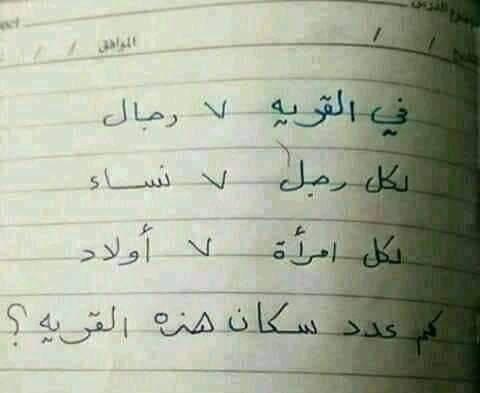 الموافق / /
/ /
في القريه ٧ رجال
لكل رجل ٧ نساء
لكل امرأة ٧ أولاد
كم عدد سكان هذه القريه ؟